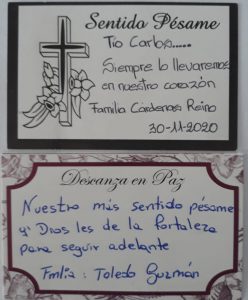 Sentido Pésame
Tío Carlos.....
Siempre lo llevaremos
en nuestro corazón
Familia Cárdenas Reino
30-11-2020
Descanza en Paz
Nuestro más sentido pésame
q' Dios les de la fortaleza
para seguir adelante
Fmlia: Toledo Guzmán